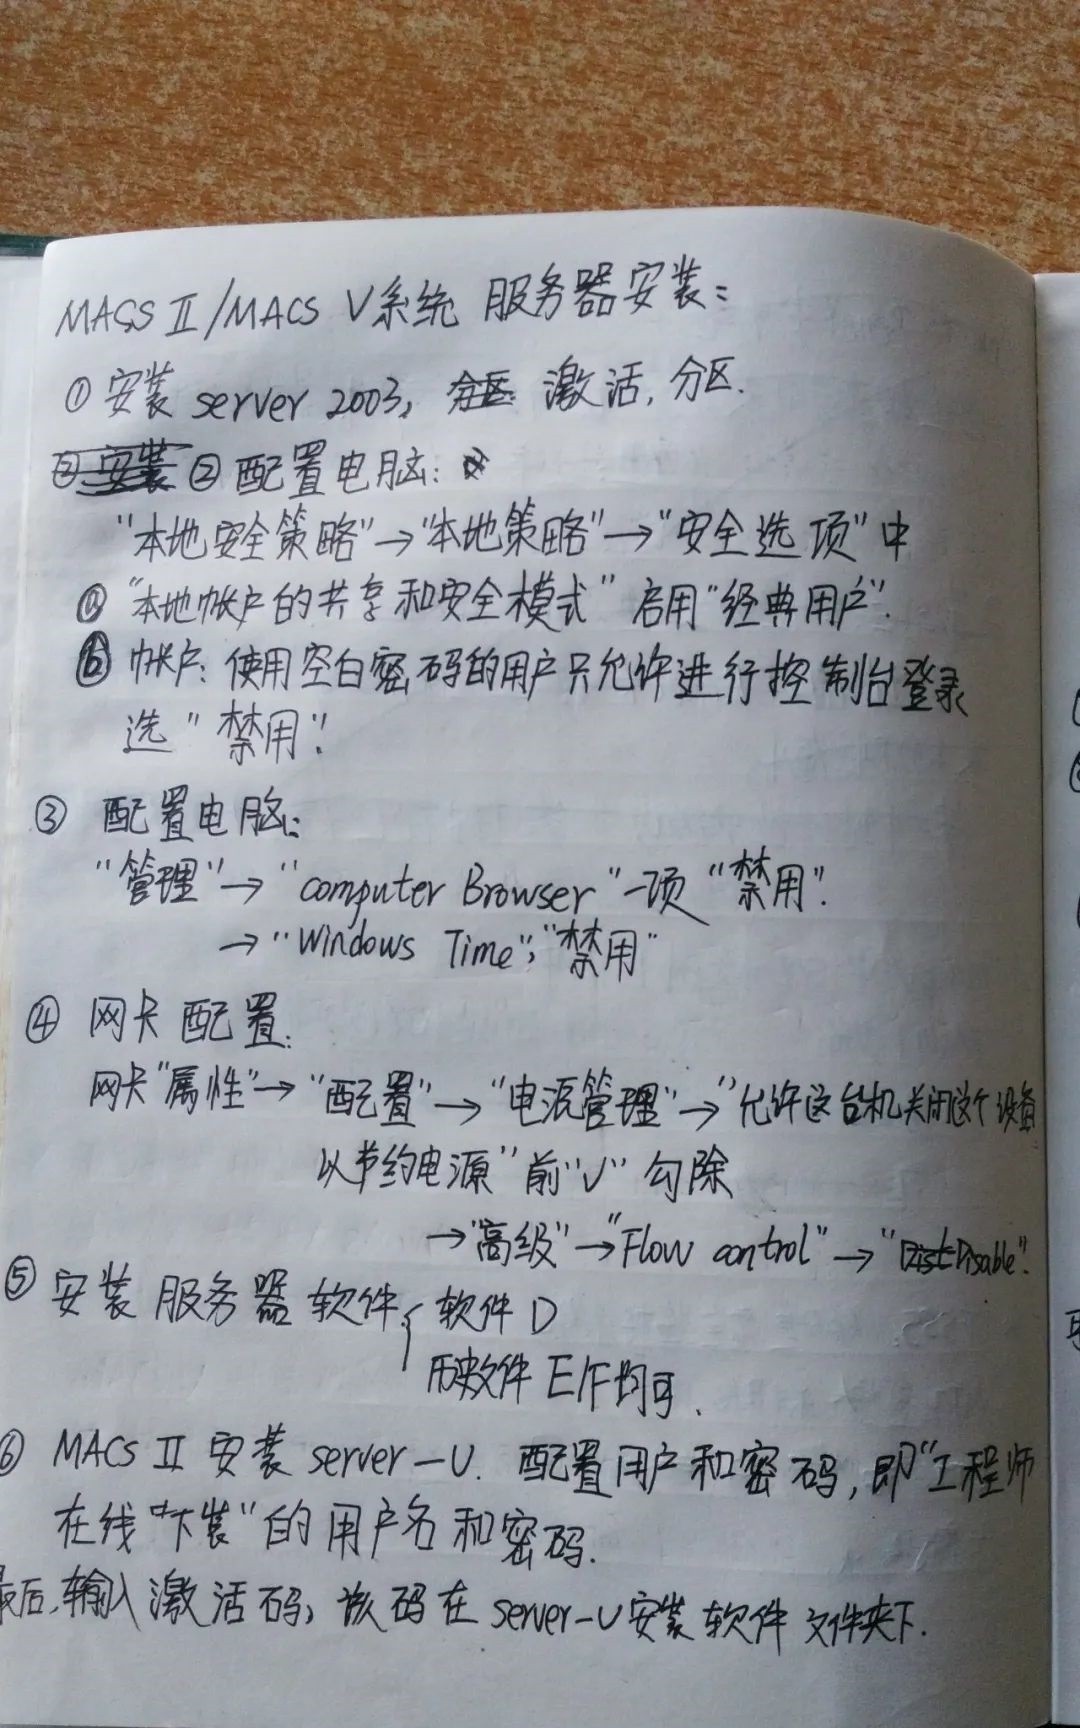 MACS Ⅱ/MACS V系统 服务器安装:
① 安装 server 2003, 激活, 分区.
② 配置电脑:
"本地安全策略"→"本地策略"→"安全选项"中
ⓐ "本地帐户的共享和安全模式" 启用"经典用户".
ⓑ 帐户: 使用空白密码的用户只允许进行控制台登录
选"禁用".
③ 配置电脑:
"管理"→"computer Browser"一项"禁用".
→"Windows Time","禁用"
④ 网卡配置:
网卡"属性"→"配置"→"电源管理"→"允许这台机关闭这个设备
以节约电源"前"√"勾除
→"高级"→"Flow control"→"Disable".
⑤ 安装服务器软件: { 软件 D
历史文件 E/F均可.
⑥ MACS Ⅱ 安装 server-U. 配置用户和密码, 即"工程师
在线"下装"的用户名和密码.
最后, 输入激活码, 该码在 server-U安装软件文件夹下.